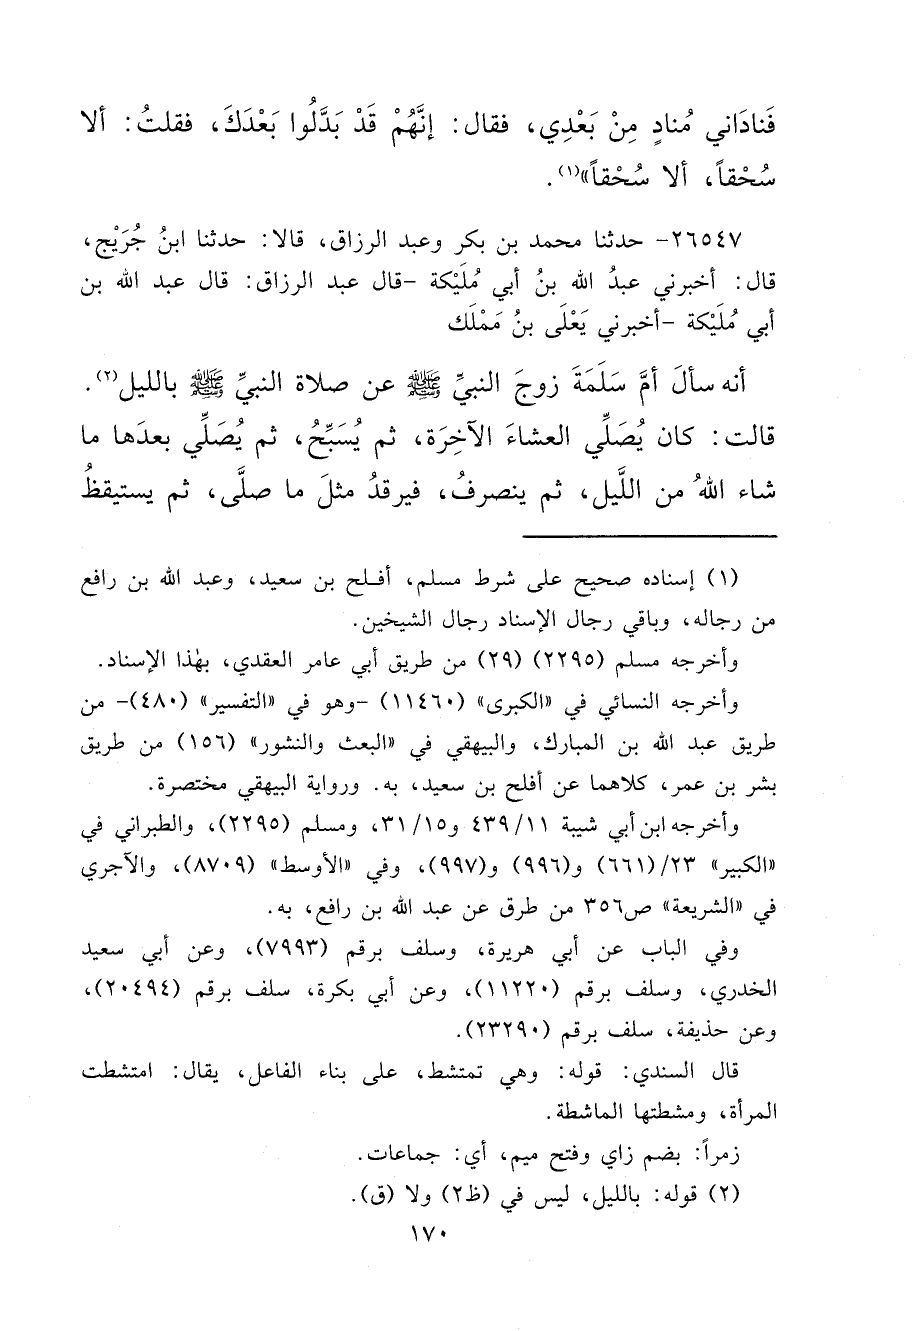 فَنادَاني مُنادٍ مِنْ بَعْدِي، فقال: إنَّهُمْ قَدْ بَدَّلُوا بَعْدَكَ، فقلتُ: ألا
سُحْقاً، ألا سُحْقاً»(١).
٢٦٥٤٧- حدثنا محمد بن بكر وعبد الرزاق، قالا: حدثنا ابنُ جُرَيْج،
قال: أخبرني عبدُ الله بنُ أبي مُلَيْكة -قال عبد الرزاق: قال عبد الله بن
أبي مُلَيْكة -أخبرني يَعْلَى بنُ مَمْلَك
أنه سألَ أمَّ سَلَمَةَ زوجَ النبيِّ ﷺ عن صلاة النبيِّ ﷺ بالليل(٢).
قالت: كان يُصَلِّي العشاءَ الآخِرَة، ثم يُسَبِّحُ، ثم يُصَلِّي بعدَها ما
شاء اللهُ من اللَّيل، ثم ينصرفُ، فيرقدُ مثلَ ما صلَّى، ثم يستيقظُ
(١) إسناده صحيح على شرط مسلم، أفلح بن سعيد، وعبد الله بن رافع
من رجاله، وباقي رجال الإسناد رجال الشيخين.
وأخرجه مسلم (٢٢٩٥) (٢٩) من طريق أبي عامر العقدي، بهٰذا الإسناد.
وأخرجه النسائي في «الكبرى» (١١٤٦٠) -وهو في «التفسير» (٤٨٠)- من
طريق عبد الله بن المبارك، والبيهقي في «البعث والنشور» (١٥٦) من طريق
بشر بن عمر، كلاهما عن أفلح بن سعيد، به. ورواية البيهقي مختصرة.
وأخرجه ابن أبي شيبة ٤٣٩/١١ و٣١/١٥، ومسلم (٢٢٩٥)، والطبراني في
«الكبير» ٢٣/(٦٦١) و(٩٩٦) و(٩٩٧)، وفي «الأوسط» (٨٧٠٩)، والآجري
في «الشريعة» ص٣٥٦ من طرق عن عبد الله بن رافع، به.
وفي الباب عن أبي هريرة، وسلف برقم (٧٩٩٣)، وعن أبي سعيد
الخدري، وسلف برقم (١١٢٢٠)، وعن أبي بكرة، سلف برقم (٢٠٤٩٤)،
وعن حذيفة، سلف برقم (٢٣٢٩٠).
قال السندي: قوله: وهي تمتشط، على بناء الفاعل، يقال: امتشطت
المرأة، ومشطتها الماشطة.
زمراً: بضم زاي وفتح ميم، أي: جماعات.
(٢) قوله: بالليل، ليس في (ظ٢) ولا (ق).
١٧٠